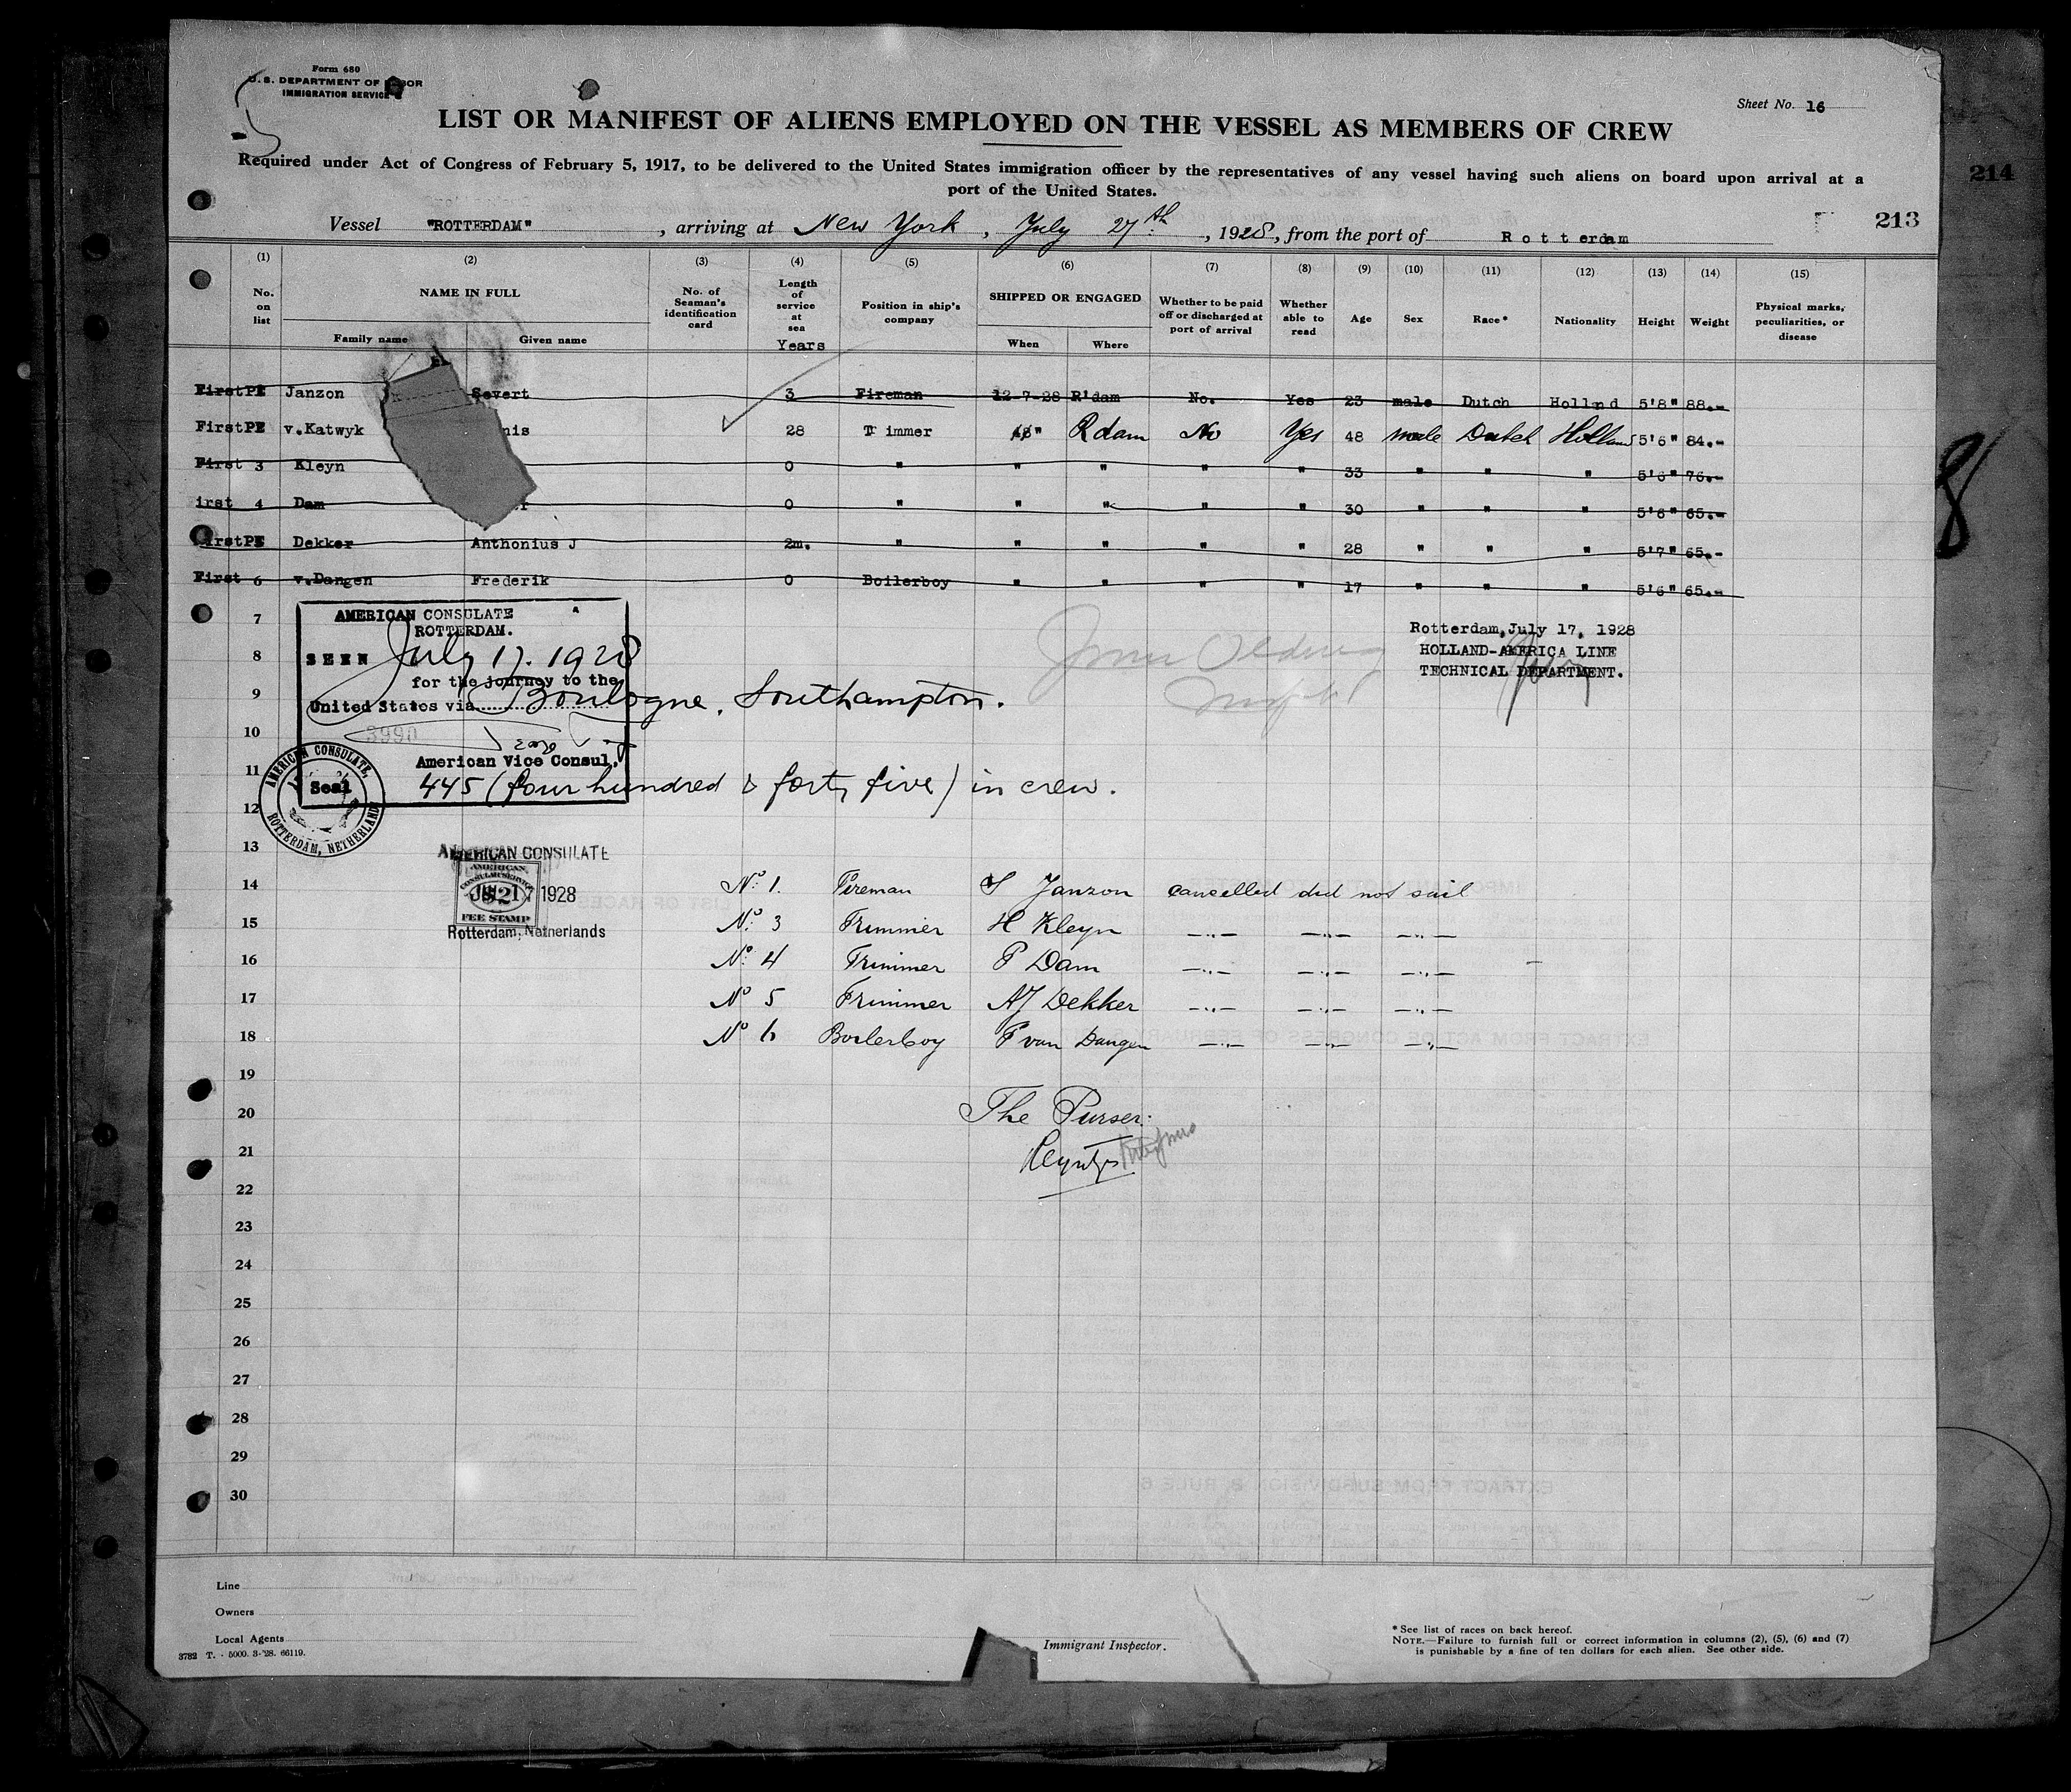 Form 680
U. S. DEPARTMENT OF LABOR
IMMIGRATION SERVICE
Sheet No. 16
LIST OR MANIFEST OF ALIENS EMPLOYED ON THE VESSEL AS MEMBERS OF CREW
Required under Act of Congress of February 5, 1917, to be delivered to the United States immigration officer by the representatives of any vessel having such aliens on board upon arrival at a
port of the United States.
214
213
Vessel "ROTTERDAM", arriving at New York, July 27th, 1928, from the port of Rotterdam
(1) (2) (3) (4) (5) (6) (7) (8) (9) (10) (11) (12) (13) (14) (15)
No. on list NAME IN FULL Family name Given name No. of Seaman's identification card Length of service at sea Years Position in ship's company SHIPPED OR ENGAGED When Where Whether to be paid off or discharged at port of arrival Whether able to read Age Sex Race* Nationality Height Weight Physical marks, peculiarities, or disease
First Janzon Severt 3 Fireman 12-7-28 R'dam No. Yes 23 male Dutch Holland 5'8" 88.-
First v.Katwyk nis 28 T immer " Rdam No Yes 48 male Dutch Holland 5'6" 84.-
First 3 Kleyn 0 " " " " " 33 " " " 5'6" 76.-
irst 4 Dam r 0 " " " " " 30 " " " 5'6" 65.-
First Dekker Anthonius J 2m. " " " " " 28 " " " 5'7" 65.-
First 6 v.Dangen Frederik 0 Boilerboy " " " " 17 " " " 5'6" 65.-
7
AMERICAN CONSULATE
ROTTERDAM.
Rotterdam, July 17, 1928
8
SEEN July 17. 1928
HOLLAND-AMERICA LINE
TECHNICAL DEPARTMENT.
for the journey to the
9
United States via Boulogne, Southampton.
10
3990
American Vice Consul,
11
Seal
445 (four hundred & forty five) in crew.
12
AMERICAN CONSULATE, ROTTERDAM, NETHERLAND
13
AMERICAN CONSULATE
AMERICAN CONSULAR SERVICE
$2 17 1928
FEE STAMP
Rotterdam, Netherlands
14 No. 1. Fireman S Janzon cancelled did not sail
15 No. 3 Trimmer H Kleyn -"- -"- -"-
16 No. 4 Trimmer P Dam -"- -"- -"-
17 No 5 Trimmer AJ Dekker -"- -"- -"-
18 No 6 Boilerboy F van Dangen -"- -"- -"-
19
20 The Purser:
21
22
23
24
25
26
27
28
29
30
8
Line
Owners
Local Agents
3782 T. - 5000. 3-'28. 66119.
Immigrant Inspector.
*See list of races on back hereof.
NOTE.—Failure to furnish full or correct information in columns (2), (5), (6) and (7)
is punishable by a fine of ten dollars for each alien. See other side.